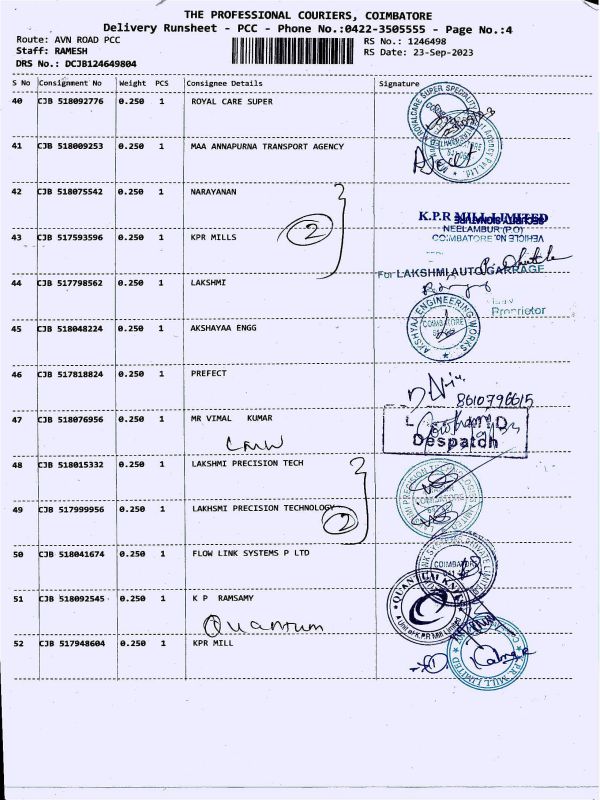 THE PROFESSIONAL COURIERS, COIMBATORE
Delivery Runsheet - PCC - Phone No.:0422-3505555 - Page No.:4
Route: AVN ROAD PCC RS No.: 1246498
Staff: RAMESH RS Date: 23-Sep-2023
DRS No.: DCJB124649804
S No Consignment No Weight PCS Consignee Details Signature
40 CJB 518092776 0.250 1 ROYAL CARE SUPER
41 CJB 518009253 0.250 1 MAA ANNAPURNA TRANSPORT AGENCY
42 CJB 518075542 0.250 1 NARAYANAN
K.P.R MILL LIMITED
NEELAMBUR (P.O)
43 CJB 517593596 0.250 1 KPR MILLS 2 COIMBATORE
For LAKSHMI AUTO GARRAGE
44 CJB 517798562 0.250 1 LAKSHMI
Proprietor
45 CJB 518048224 0.250 1 AKSHAYAA ENGG AKSHYAA ENGINEERING WORKS COIMBATORE
46 CJB 517818824 0.250 1 PREFECT
8610796615
47 CJB 518076956 0.250 1 MR VIMAL KUMAR
LMW Despatch
48 CJB 518015332 0.250 1 LAKSHMI PRECISION TECH
49 CJB 517999956 0.250 1 LAKHSMI PRECISION TECHNOLOGY 2
50 CJB 518041674 0.250 1 FLOW LINK SYSTEMS P LTD
51 CJB 518092545 0.250 1 K P RAMSAMY
Quantum
52 CJB 517948604 0.250 1 KPR MILL K.P.R. MILL LIMITED